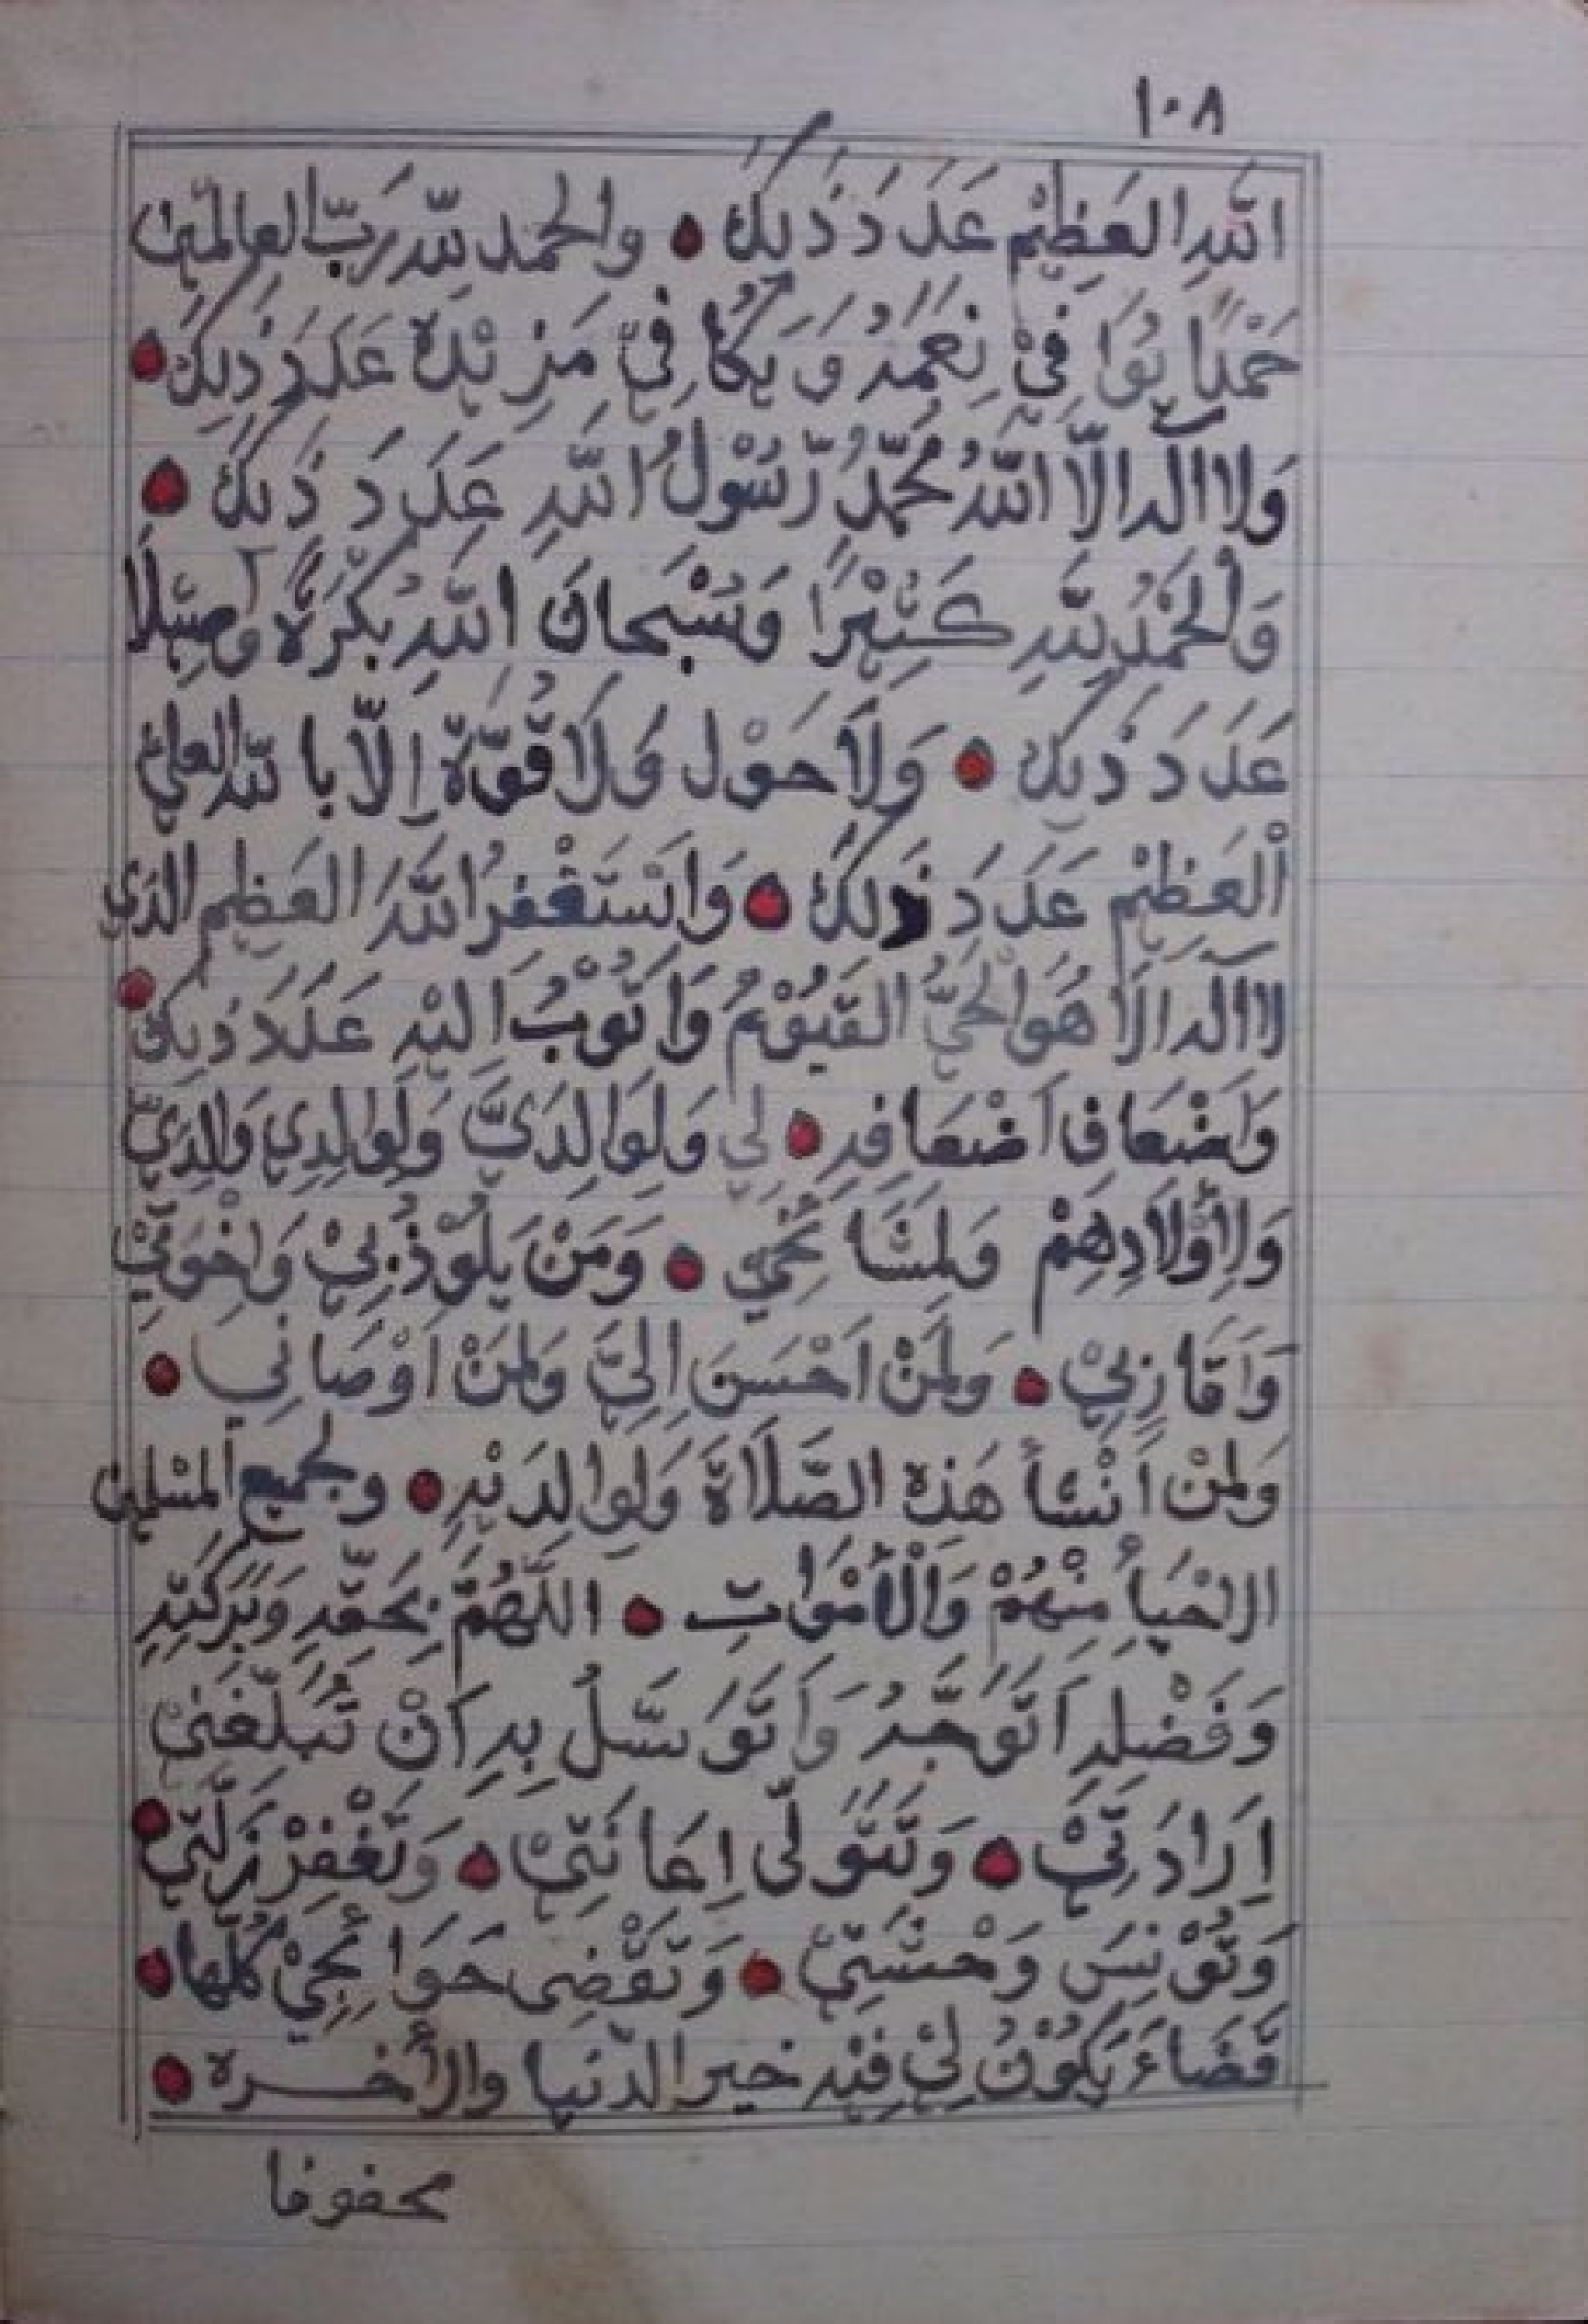 ١٠٨
اللهِ العَظِيْمِ عَدَدَ ذٰلِكَ • والحمد للّه رَبّ العالمين
حَمْدًا يُوَافِيْ نِعَمَهُ وَيُكَافِيْ مَزِيْدَهُ عَدَدَ ذٰلِكَ •
وَلا اله الّا اللّهُ مُحَمَّدُ رَّسُوْلُ اللّهِ عَدَدَ ذٰلِكَ •
وَالْحَمْدُ للّهِ كَثِيْرًا وَسُبْحَانَ اللّهِ بُكْرَةً وَاَصِيْلًا
عَدَدَ ذٰلِكَ • وَلَا حَوْل وَلَا قُوَّةَ اِلّا با للّه العلي
الْعَظِيْمِ عَدَدَ ذٰلِكَ • وَاَسْتَغْفِرُ اللّهَ العَظِيم الذي
لا اله الَّا هُوَ الْحَيُّ القَيُّوْمُ وَاَتُوْبُ اليْهِ عَدَدَ ذٰلِكَ •
وَاَضْعَافِ اَضْعَافِهِ • لِي وَلِوَالِدَيَّ وَلِوَالِدِي وَالِدَيَّ
وَلِاَوْلَادِهِمْ وَلِمَشَائِخِي • وَمَنْ يَلُوْذُ بِيْ وَاِخْوَتِيْ
وَاَقَارِبِيْ • وَلِمَنْ اَحْسَنَ اِلَيَّ وَلِمَنْ اَوْصَانِي •
وَلِمَنْ اَنْشَأَ هَذِهِ الصَّلَاةَ وَلِوالِدَيْهِ • ولجميع المسْلمين
الاَحْيَاءِ مِنْهُمْ وَالْأَمْوَاتِ • اللَّهُمَّ بِحَقِّهِ وَبَرَكَتِهِ
وَفَضْلِهِ اَتَوَجَّهُ وَاَتَوَسَّلُ بِهِ اَنْ تُبَلِّغَنِيْ
اِرَادَتِيْ • وَتَتَوَلَّى اِعَانَتِيْ • وَتَغْفِرْ زَلَّتِيْ •
وَتُوْنِسَ وَحْشَتِيْ • وَتَقْضِى حَوَائِجِيْ كُلّها •
قَضَاءً يَكُوْنُ لِيْ فِيْهِ خير الدّنيا والأخره •
محفوفا